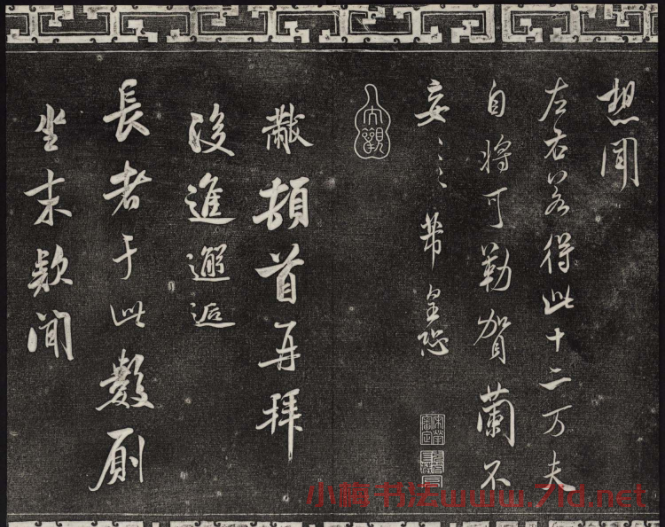 想聞
左右若得此十二万夫
自將可勒賀蘭不
妄〻芾皇恐
大觀
黻頓首再拜
後進邂逅
長者于此數廁
坐末款聞
书法www.7ld.net